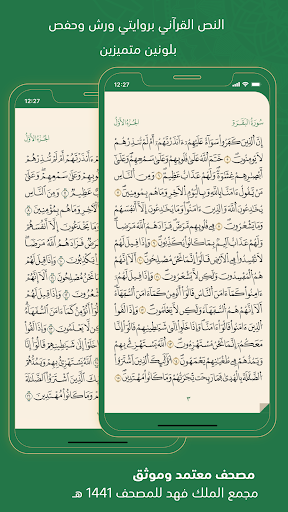 النص القرآني بروايتي ورش وحفص
بلونين متميزين
12:27
12:27
الجزء الأول
سورة البقرة
الجزء الأول
إِنَّ ٱلَّذِينَ كَفَرُوا۟ سَوَآءٌ عَلَيْهِمْ ءَأَنذَرْتَهُمْ أَمْ لَمْ تُنذِرْهُمْ
لَا يُؤْمِنُونَ ٦ خَتَمَ ٱللَّهُ عَلَىٰ قُلُوبِهِمْ وَعَلَىٰ سَمْعِهِمْ وَعَلَىٰٓ
أَبْصَٰرِهِمْ غِشَٰوَةٌ وَلَهُمْ عَذَابٌ عَظِيمٌ ٧ وَمِنَ ٱلنَّاسِ
مَن يَقُولُ ءَامَنَّا بِٱللَّهِ وَبِٱلْيَوْمِ ٱلْءَاخِرِ وَمَا هُم بِمُؤْمِنِينَ ٨
يُخَٰدِعُونَ ٱللَّهَ وَٱلَّذِينَ ءَامَنُوا۟ وَمَا يَخْدَعُونَ إِلَّآ أَنفُسَهُمْ
وَمَا يَشْعُرُونَ ٩ فِى قُلُوبِهِم مَّرَضٌ فَزَادَهُمُ ٱللَّهُ مَرَضًا
وَلَهُمْ عَذَابٌ أَلِيمٌۢ بِمَا كَانُوا۟ يَكْذِبُونَ ١٠ وَإِذَا قِيلَ لَهُمْ
لَا تُفْسِدُوا۟ فِى ٱلْأَرْضِ قَالُوٓا۟ إِنَّمَا نَحْنُ مُصْلِحُونَ ١١ أَلَآ إِنَّهُمْ
هُمُ ٱلْمُفْسِدُونَ وَلَٰكِن لَّا يَشْعُرُونَ ١٢ وَإِذَا قِيلَ لَهُمْ
ءَامِنُوا۟ كَمَآ ءَامَنَ ٱلنَّاسُ قَالُوٓا۟ أَنُؤْمِنُ كَمَآ ءَامَنَ ٱلسُّفَهَآءُ
أَلَآ إِنَّهُمْ هُمُ ٱلسُّفَهَآءُ وَلَٰكِن لَّا يَعْلَمُونَ ١٣ وَإِذَا لَقُوا۟
ٱلَّذِينَ ءَامَنُوا۟ قَالُوٓا۟ ءَامَنَّا وَإِذَا خَلَوْا۟ إِلَىٰ شَيَٰطِينِهِمْ قَالُوٓا۟
إِنَّا مَعَكُمْ إِنَّمَا نَحْنُ مُسْتَهْزِءُونَ ١٤ ٱللَّهُ يَسْتَهْزِئُ بِهِمْ
وَيَمُدُّهُمْ فِى طُغْيَٰنِهِمْ يَعْمَهُونَ ١٥ أُو۟لَٰٓئِكَ ٱلَّذِينَ ٱشْتَرَوُا۟
ٱلضَّلَٰلَةَ بِٱلْهُدَىٰ فَمَا رَبِحَت تِّجَٰرَتُهُمْ وَمَا كَانُوا۟ مُهْتَدِينَ ١٦
٣
مصحف معتمد وموثق
مجمع الملك فهد للمصحف 1441 هـ